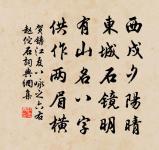 西戍夕陽晴
東城石鏡明
有山名八字
供作兩眉橫
賀鑄江夏八詠之六右
石詞典網集